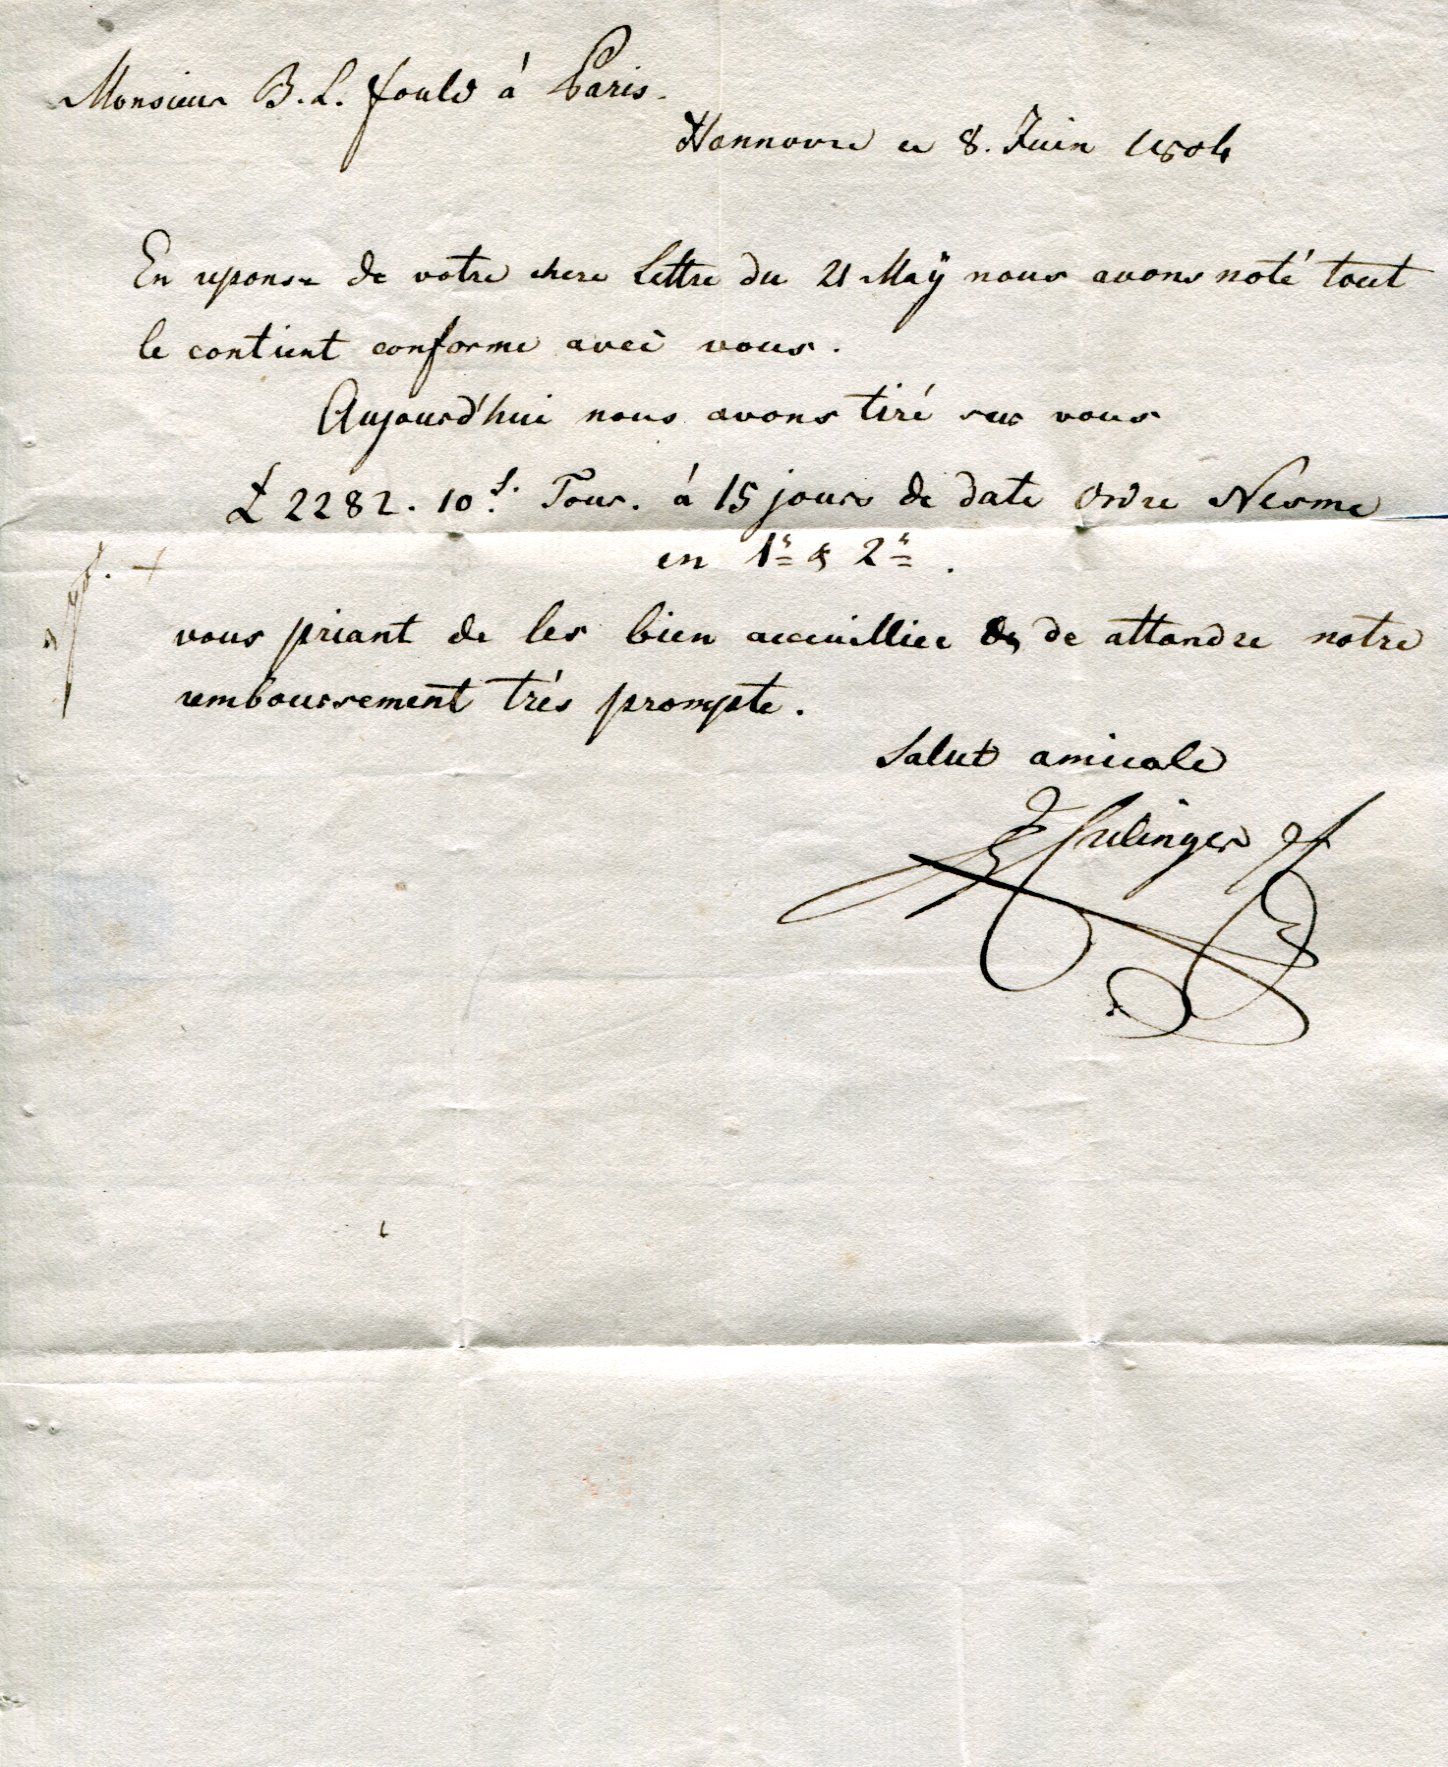 Monsieur B. L. Fould à Paris.
Hannovre ce 8. Juin 1804
En reponse de votre chere Lettre du 21 Maÿ nous avons noté tout
le contient conforme avec vous.
Aujourd'hui nous avons tiré sur vous
£ 2282. 10 s. Tour. à 15 jours de date Ordre Nesme
en 1r & 2r.
vous priant de les bien accuillier & de attandre notre
remboursement très prompte.
Salut amicale